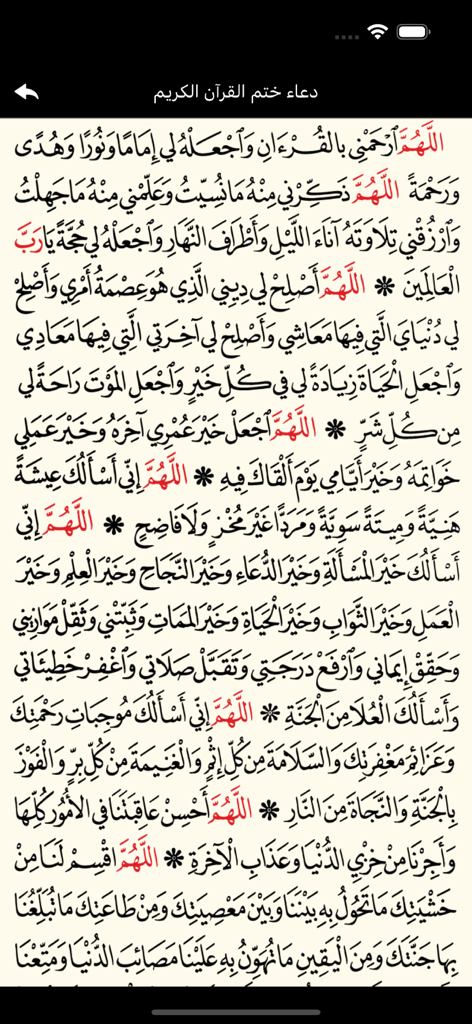 دعاء ختم القرآن الكريم
اللَّهُمَّ ٱرْحَمْنِي بِالقُرْءَانِ وَٱجْعَلْهُ لِي إِمَامًا وَنُورًا وَهُدًى
وَرَحْمَةً اللَّهُمَّ ذَكِّرْنِي مِنْهُ مَانُسِّيتُ وَعَلِّمْنِي مِنْهُ مَاجَهِلْتُ
وَٱرْزُقْنِي تِلَاوَتَهُ آنَاءَ اللَّيْلِ وَأَطْرَافَ النَّهَارِ وَٱجْعَلْهُ لِي حُجَّةً يَارَبَّ
العَالَمِينَ ❋ اللَّهُمَّ أَصْلِحْ لِي دِينِي الَّذِي هُوَعِصْمَةُ أَمْرِي وَأَصْلِحْ
لِي دُنْيَايَ الَّتِي فِيهَا مَعَاشِي وَأَصْلِحْ لِي آخِرَتِي الَّتِي فِيهَا مَعَادِي
وَٱجْعَلِ الْحَيَاةَ زِيَادَةً لِي فِي كُلِّ خَيْرٍ وَٱجْعَلِ المَوْتَ رَاحَةً لِي
مِن كُلِّ شَرٍّ ❋ اللَّهُمَّ ٱجْعَلْ خَيْرَ عُمْرِي آخِرَهُ وَخَيْرَ عَمَلِي
خَوَاتِمَهُ وَخَيْرَ أَيَّامِي يَوْمَ أَلْقَاكَ فِيهِ ❋ اللَّهُمَّ إِنِّي أَسْأَلُكَ عِيشَةً
هَنِيَّةً وَمِيتَةً سَوِيَّةً وَمَرَدًّا غَيْرَ مُخْزٍ وَلَا فَاضِحٍ ❋ اللَّهُمَّ إِنِّي
أَسْأَلُكَ خَيْرَ المَسْأَلَةِ وَخَيْرَ الدُّعَاءِ وَخَيْرَ النَّجَاحِ وَخَيْرَ العِلْمِ وَخَيْرَ
العَمَلِ وَخَيْرَ الثَّوَابِ وَخَيْرَ الحَيَاةِ وَخَيْرَ المَمَاتِ وَثَبِّتْنِي وَثَقِّلْ مَوَازِينِي
وَحَقِّقْ إِيمَانِي وَٱرْفَعْ دَرَجَتِي وَتَقَبَّلْ صَلَاتِي وَٱغْفِرْ خَطِيئَاتِي
وَأَسْأَلُكَ العُلَا مِنَ الجَنَّةِ ❋ اللَّهُمَّ إِنِّي أَسْأَلُكَ مُوجِبَاتِ رَحْمَتِكَ
وَعَزَائِمِ مَغْفِرَتِكَ وَالسَّلَامَةَ مِن كُلِّ إِثْمٍ وَالغَنِيمَةَ مِنْ كُلِّ بِرٍّ وَالفَوْزَ
بِالجَنَّةِ وَالنَّجَاةَ مِنَ النَّارِ ❋ اللَّهُمَّ أَحْسِنْ عَاقِبَتَنَا فِي الأُمُورِ كُلِّهَا
وَأَجِرْنَا مِنْ خِزْيِ الدُّنْيَا وَعَذَابِ الْآخِرَةِ ❋ اللَّهُمَّ اقْسِمْ لَنَا مِنْ
خَشْيَتِكَ مَاتَحُولُ بِهِ بَيْنَنَا وَبَيْنَ مَعْصِيَتِكَ وَمِنْ طَاعَتِكَ مَاتُبَلِّغُنَا
بِهَا جَنَّتَكَ وَمِنَ الْيَقِينِ مَاتُهَوِّنُ بِهِ عَلَيْنَا مَصَائِبَ الدُّنْيَا وَمَتِّعْنَا